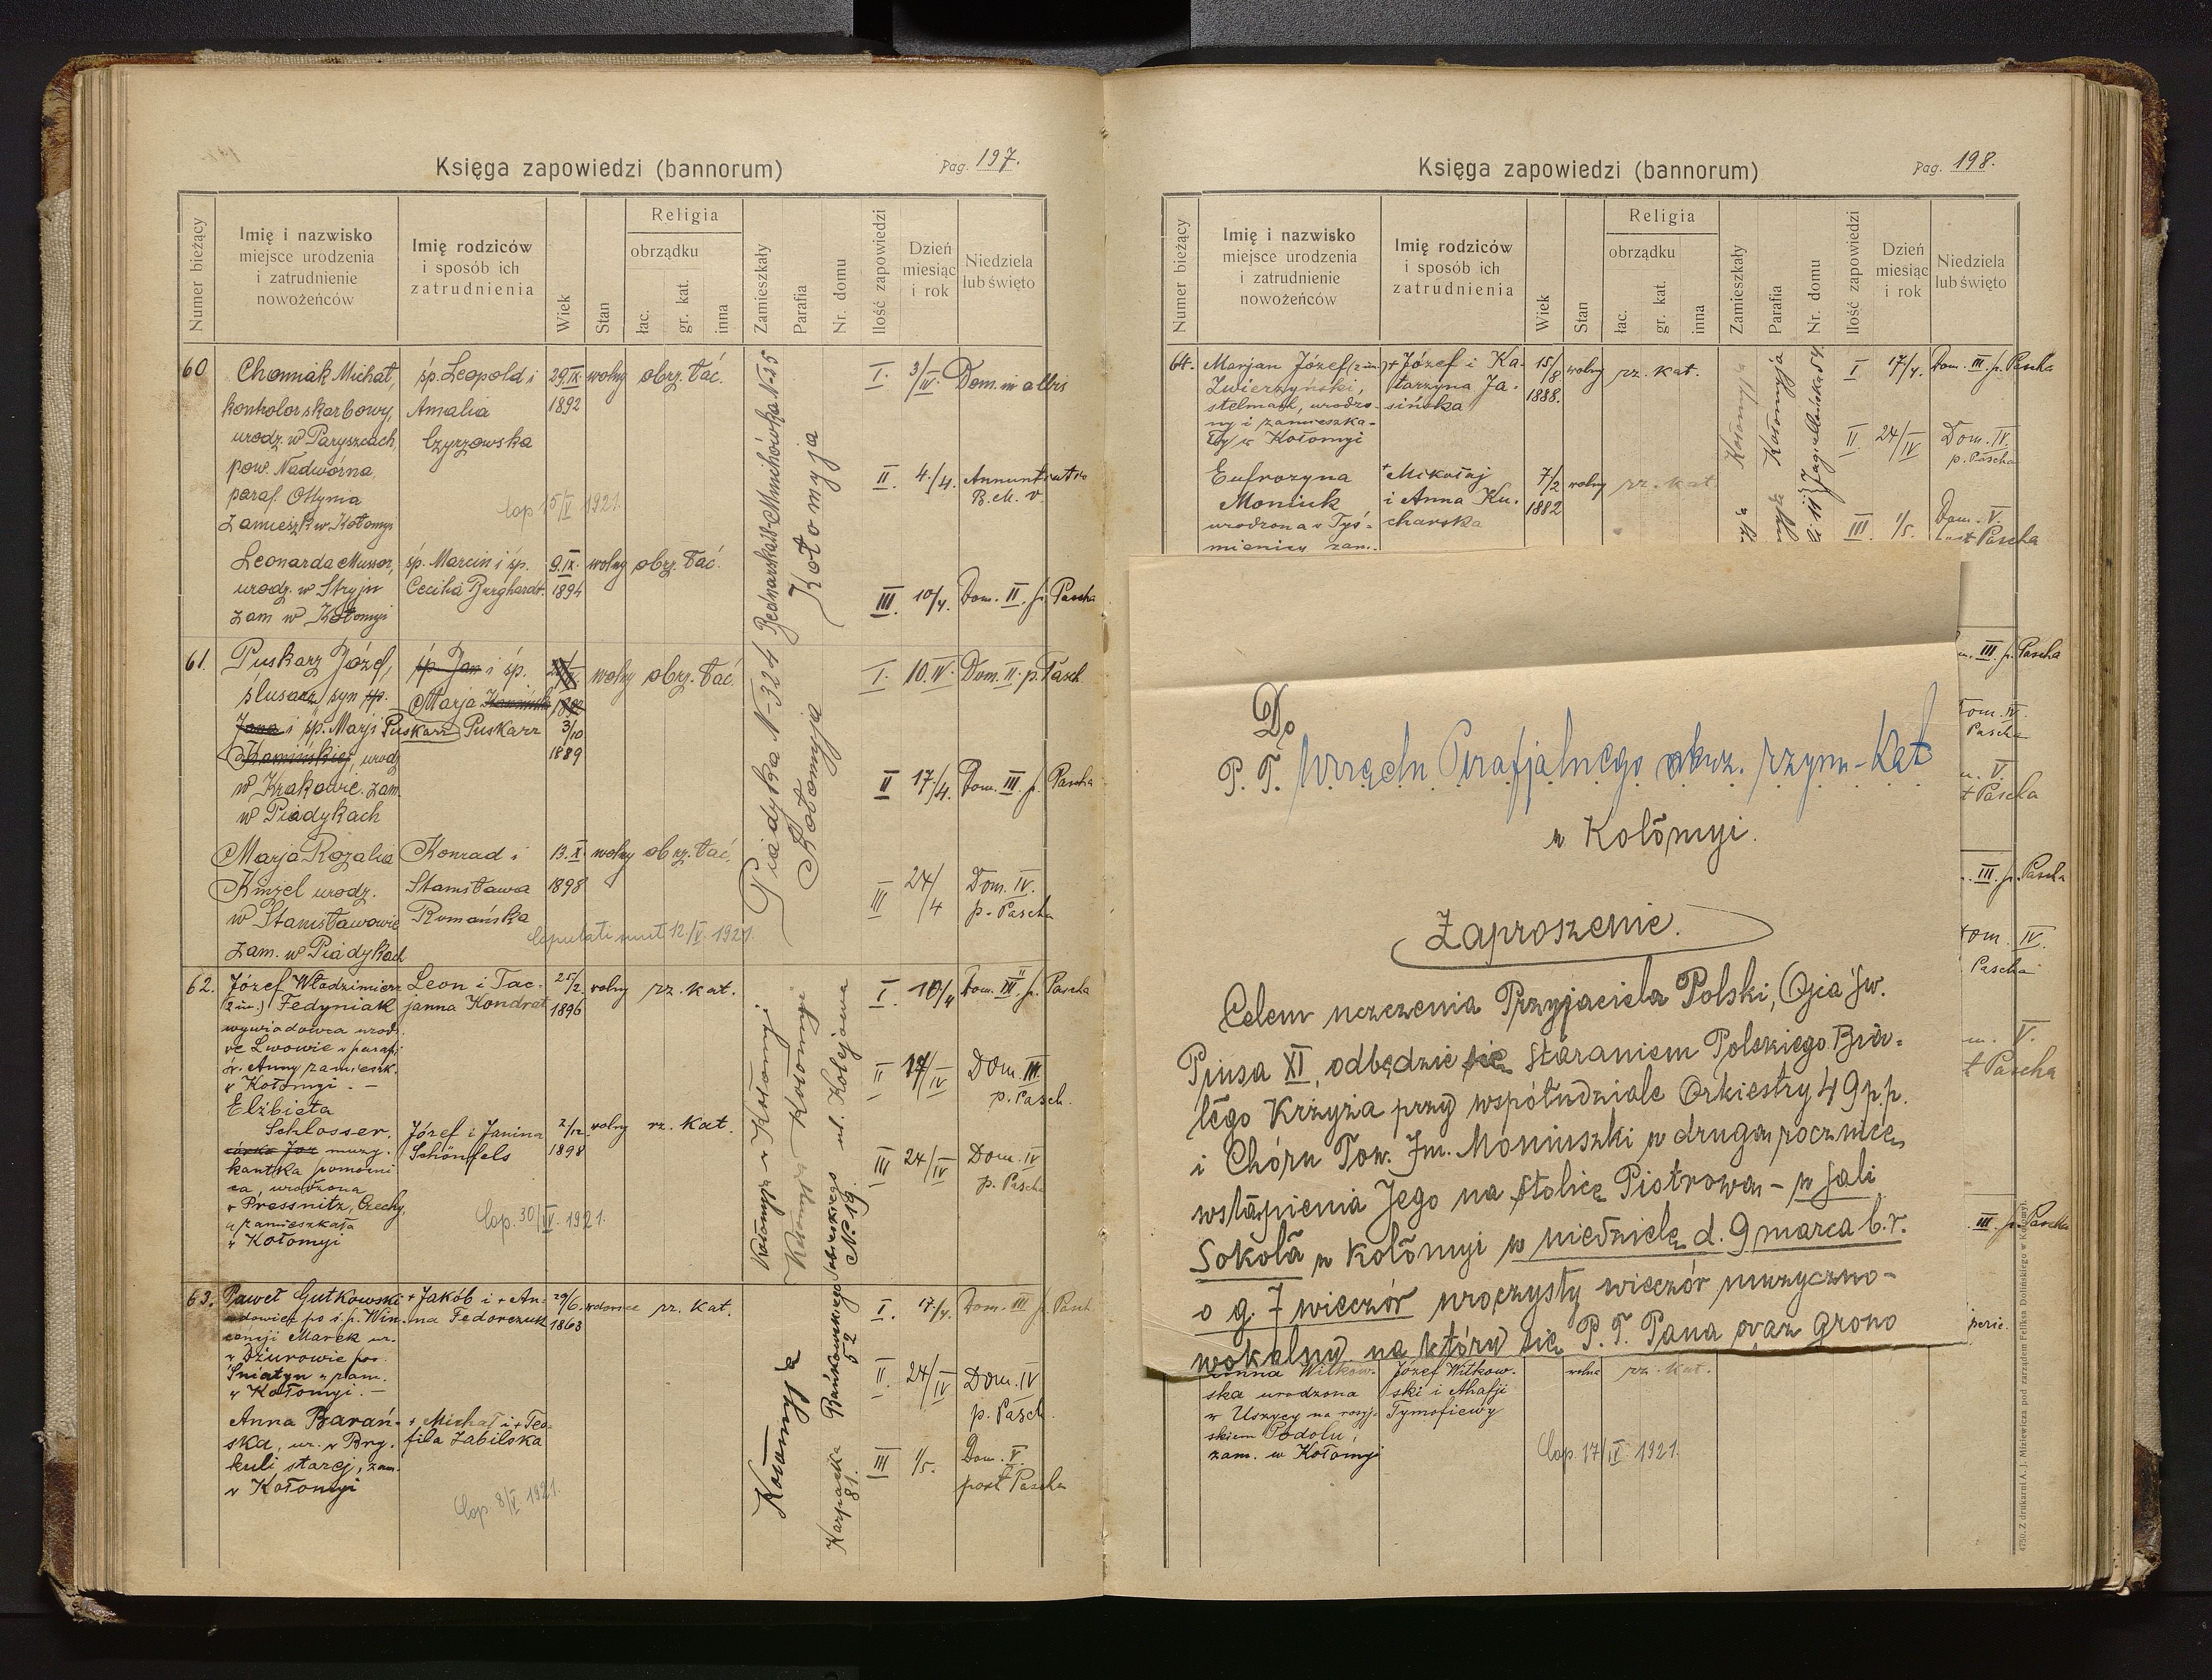 Księga zapowiedzi (bannorum)
Pag. 197.
Numer bieżący
Imię i nazwisko
miejsce urodzenia
i zatrudnienie
nowożeńców
Imię rodziców
i sposób ich
zatrudnienia
Wiek
Stan
Religia
obrządku
łac.
gr. kat.
inna
Zamieszkały
Parafia
Nr. domu
Ilość zapowiedzi
Dzień
miesiąc
i rok
Niedziela
lub święto
60
Chomiak Michał,
kontrolor skarbowy,
urodz. w Paryszczach,
pow. Nadwórna
paraf. Ottynia
zamieszk. w Kołomyi
śp. Leopold i
Amalia
Czyrzowska
29.IX.
1892
wolny
obrz. łać.
cop 15/V 1921.
Leonarda Musser,
urodz. w Stryju
zam w Kołomyi
śp. Marcin i śp.
Cecilia Burghardt.
9.IX.
1894
wolny
obrz. łać.
Kołomyja
I. 3/IV. Dom. in albis
II 4./4. Annuntiatio
B. M. V.
III 10/4. Dom. II p. Pascha
61.
Puskarz Józef,
ślusarz, syn śp.
Jana i śp. Marji Puskarz
Kamińskiej, urodz
w Krakowie. zam.
w Piadykach
śp. Jan i śp.
Marja Kamińska
Puskarz
3/10
1889
wolny
obrz. łać.
Marja Rozalia
Kinzel urodz.
w Stanisławowie
zam. w Piadykach
Konrad i
Stanisława
Romańska
13.X.
1898
wolny
obrz. łać.
Copulati sunt 12/V. 1921.
Piadyka N-324
Kołomyja
I. 10.IV. Dom. II. p. Pasch.
II 17/4. Dom. III p. Pascha
III 24/4 Dom. IV.
p. Pascha
62.
Józef Włodzimierz
(2 im.) Fedyniak
wywiadowca urodz.
we Lwowie w parafji
św. Anny zamieszk.
w Kołomyi. —
Leon i Tac-
janna Kondrat
25/2
1896
wolny
rz. kat.
Elżbieta
Schlosser.
córka Joz muzy-
kantka pomocni
ca, urodzona
w Pressnitz, Czechy,
a zamieszkała
w Kołomyi
Józef i Janina
Schönfels
2/12
1898
wolny
rz. kat.
Cop. 30/IV. 1921.
Kołomyja w Kołomyi
Sobieskiego ul. Kolejowa
N. 19.
I. 10/4 Dom. II p. Pascha
II 17/IV DOM. III.
p. Pasch.
III 24/IV Dom. IV
p. Pascha
63.
Paweł Gutkowski
wdowiec po ś.p. Win-
centji Marek ur.
w Dżurowie pow.
Śniatyn w zam.
w Kołomyi. —
+ Jakób i + An-
na Fedorczuk
29/6.
1863
wdowiec
rz. kat.
Anna Barań-
ska, ur. w Bry-
kuli starej, zam.
w Kołomyi
+ Michał i + Teo-
fila Zabilska
Cop. 8/V. 1921.
Kołomyja
Karpacka 81.
52
I. 17/4. Dom. III p. Pasch
II. 24/IV Dom. IV
p. Pasch.
III 1/5. Dom. V.
post Pascha
Księga zapowiedzi (bannorum)
Pag. 198.
Numer bieżący
Imię i nazwisko
miejsce urodzenia
i zatrudnienie
nowożeńców
Imię rodziców
i sposób ich
zatrudnienia
Wiek
Stan
Religia
obrządku
łac.
gr. kat.
inna
Zamieszkały
Parafia
Nr. domu
Ilość zapowiedzi
Dzień
miesiąc
i rok
Niedziela
lub święto
64.
Marjan Józef (2 im.)
Zwierzyński,
stelmach, urodzo-
ny i zamieszka-
ły w Kołomyi
+ Józef i Ka-
tarzyna Ja-
sińska
15/8
1888.
wolny
rz. kat.
Eufrozyna
Moniuk
urodzona w Tyś-
mienicy zam.
+ Mikołaj
i Anna Ku-
charska
7/2
1882
wolny
rz. kat
Kołomyja
Kołomyja
Jagiellońska 54.
I 17/4. Dom. III. p. Pascha
II 24/IV Dom. IV.
p. Pascha
III 1/5. Dom. V.
post Pascha
III p. Pascha
Dom. IV.
Pascha
V.
t Pascha
III. p. Pascha
Dom. IV.
Pascha
V.
t Pascha
III p. Pascha
Do
P. T. Urzędu Parafjalnego obrz. rzym-kat
w Kołomyi.
Zaproszenie.
Celem uczczenia Przyjaciela Polski, Ojca Św.
Piusa XI, odbędzie się staraniem Polskiego Bia-
łego Krzyża przy współudziale Orkiestry 49 p.p.
i Chóru Tow. Im. Moniuszki w drugą rocznicę
wstąpienia Jego na stolicę Piotrową — w sali
Sokoła w Kołomyi w niedzielę d. 9 marca b.r.
o g. 7 wieczór uroczysty wieczór muzyczno-
wokalny na który się P. T. Pana oraz Grono
Anna Witkow-
ska urodzona
w Uszycy na rosyj-
skiem Podolu,
zam. w Kołomyi
Józef Witkow-
ski i Ahafji
Tymofiewy
wolna
rz. kat.
Cop. 17/IV. 1921.
4750. Z drukarni A. J. Miziewicza pod zarządem Feliksa Dolińskiego w Kołomyi.